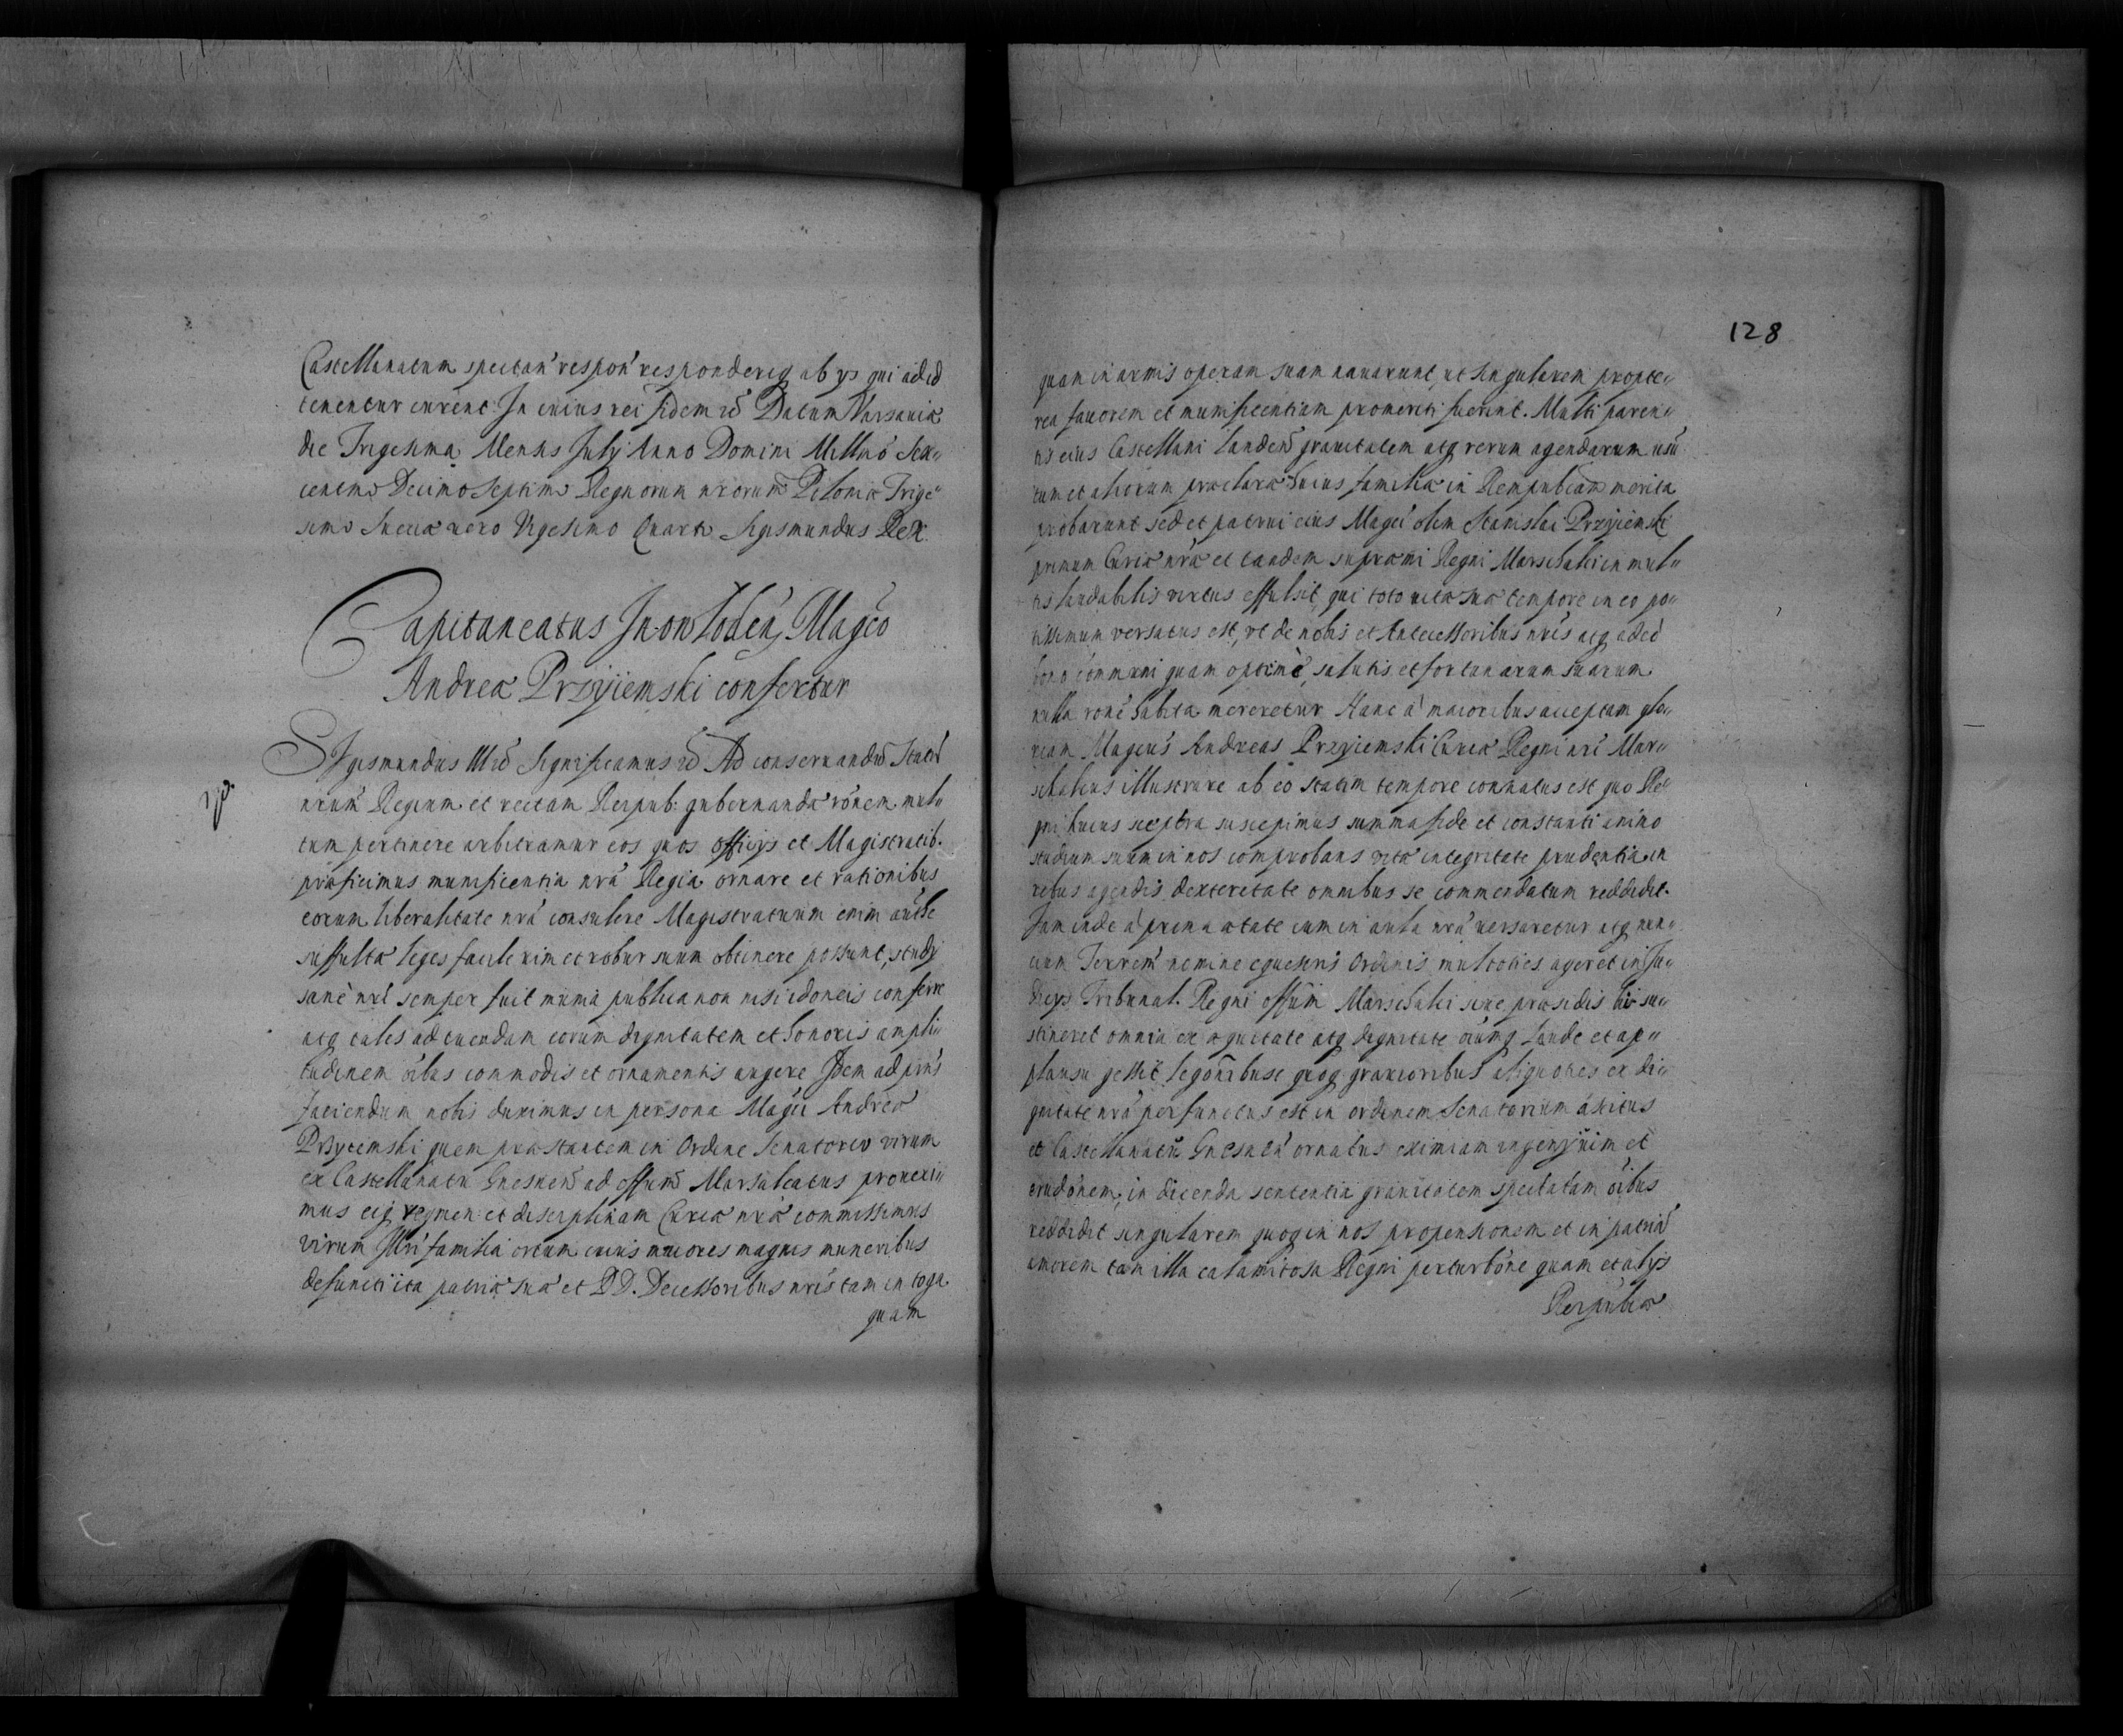 Castellanatum spectan' respon' responderiq ab ys qui ad id
tenentur curent. In cuius rei fidem rc̃ Datum Varsauiæ
die Trigesima Mensis July Anno Domini Millmo Sex„
centmo Decimo Septimo Regnorum nrorum Poloniæ Trige„
simo Sueciæ uero Vigesimo Quarto. Sigismundus Rex.
Capitaneatus Inowlodeñ Magco
Andreæ Przyiemski confertur
Sigismundus IIIc̃ Significamus rc̃ Ad conseruandũ Statũ
nrum Regium et rectam Reipub: gubernandæ rõnem mul„
tum pertinere arbitramur eos quos officys et Magistratib.
præficimus munificentia nrã Regia ornare et rationibus
eorum liberalitate nrã consulere Magistratuum enim authẽ
suffultæ leges facile uim et robur suum obtinere possunt, studj
sanè nri semper fuit munia publica non nisi idoneis conferre
atq tales ad tuendam eorum dignitatem et honoris ampli„
tudinem oĩbus commodis et ornamentis augere. Idem ad prns
faciendum nobis duximus in persona Magci Andreæ
Przyiemski quem præstantem in Ordine Senatorio virum
ex Castellanatu Gnesneñ ad offum Marsaleatus prouexi„
mus eiq regmen et disciplinam Curiæ nræ commissimus
virum Illri familia ortum cuius maiores magnis muneribus
defuncti ita patriæ suæ et DD. Decessoribus nris tam in toga
quam
128
quam in armis operam suam nauarunt, ut singularem propte„
rea fauorem et munificentiam promeriti fuerint. Multi paren„
tis eius Castellani Landeñ grauitatem atq rerum agendarum usũ
tum et aliorum præclara huius familiæ in Rempublicam merita
probarunt sed et patrui eius Magci olim Stanislai Przyiemski
primum Curiæ nræ et tandem supræmi Regni Marschalci in mul„
tis laudabilis virtus effulsit, qui toto uitæ suæ tempore in eo po„
tissimum versatus est, vt de nobis et Antecessoribus nris atq adeò
bono communi quam optimè, salutis et fortunarum suarum
nulla ronẽ habita mereretur. Hanc à maioribus acceptam glo„
riam Magcus Andreas Przyiemski Curiæ Regni nri Mar„
schalcus illustrare ab eo statim tempore connatus est quo Re„
gni huius sceptra suscepimus summa fide et constanti animo
studium suum in nos comprobans vitæ integritate prudentia in
rebus agendis dexteritate omnibus se commendatum reddidit.
Iam inde à prima ætate cum in aula nrã uersaretur atq nun„
cium Terrem nomine equestris Ordinis multoties ageret in Iu„
dicys Tribunal. Regni offum Marschalci siue præsidis bis su„
stineret omnia ex æquitate atq dignitate oiumq laude et ap„
plausu gessit legonĩbusq quoq grauioribus aliquoties ex di„
gnitate nrã perfunctus est in ordinem Senatorium ascitus
et Castellanatu Gnesneñ ornatus eximiam ingenij uim et
erudõnem, in dicenda sententia grauitatem spectatam oĩbus
reddidit singularem quoq in nos propensionem et in patriã
amorem tam illa calamitosa Regni perturbõne quam et alys
Reipublicæ